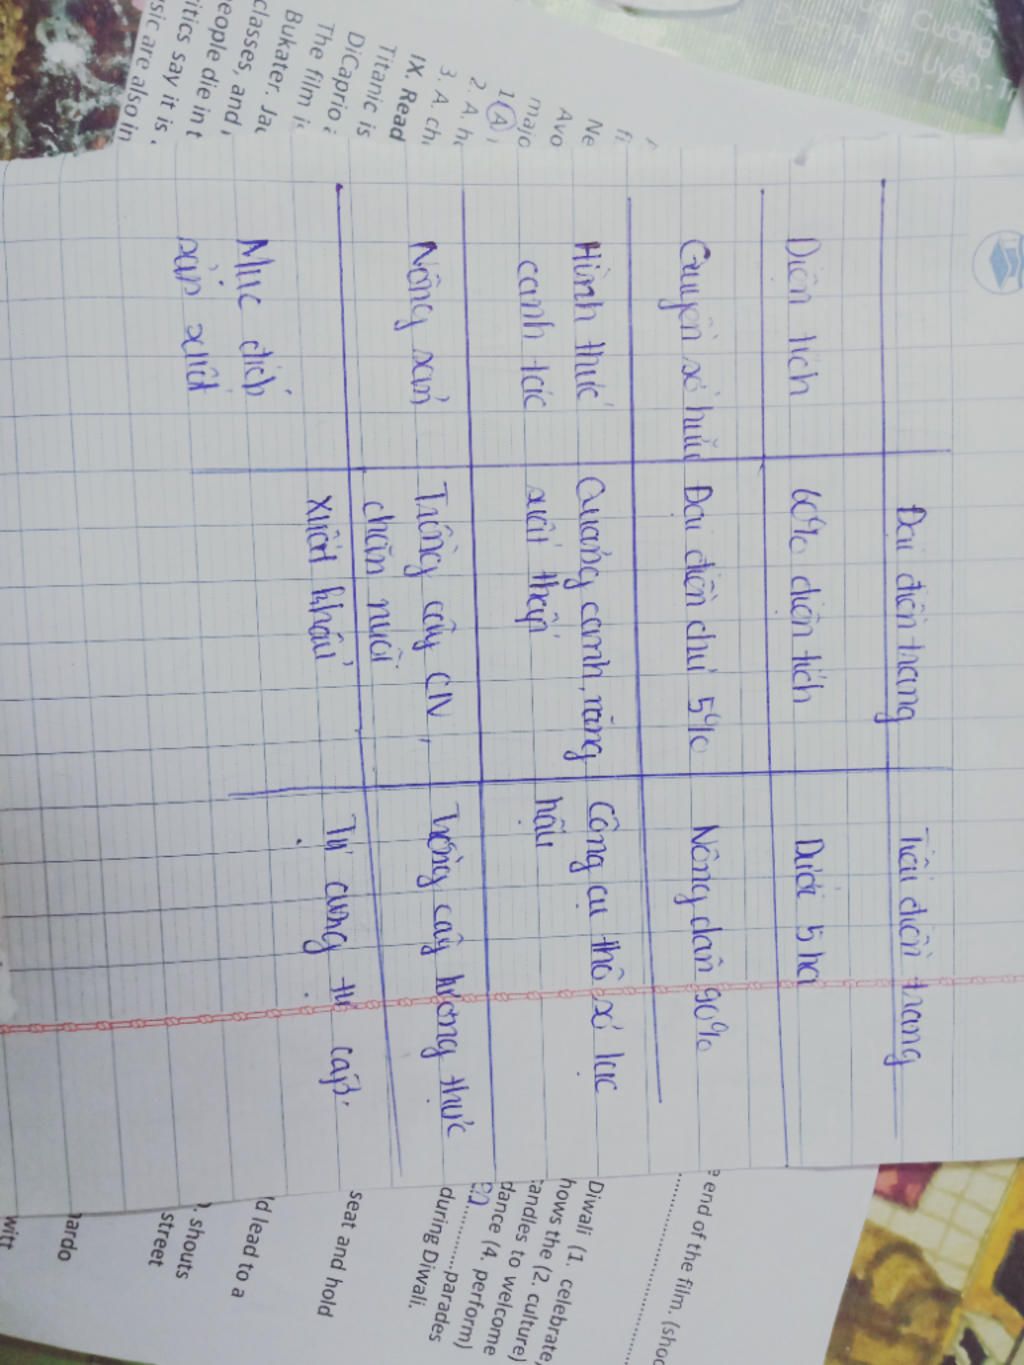 Đại điền trang
Tiểu điền trang
Diện tích
60% diện tích
Dưới 5 ha
Quyền sở hữu
Đại điền chủ 5%
Nông dân 90%
Hình thức
canh tác
Quảng canh, năng
suất thấp
Công cụ thô sơ lạc
hậu
Nông sản
Trồng cây CN,
chăn nuôi
xuất khẩu
Trồng cây lương thực
Mục đích
sản xuất
Tự cung tự cấp.
Cường
Uyên - T
fi
Ne
Avo
majo
1. A
2. A. h
3. A. ch
IX. Read
Titanic is
DiCaprio
The film is
Bukater. Jac
classes, and
eople die in t
itics say it is
sic are also in
e end of the film. (shoc
Diwali (1. celebrate,
hows the (2. culture)
andles to welcome
dance (4. perform)
parades
during Diwali.
seat and hold
ld lead to a
. shouts
street
ardo
witt